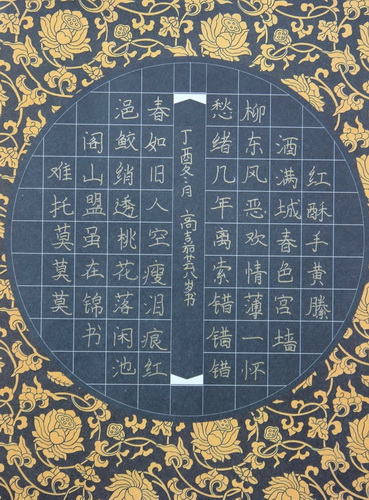 红酥手黄縢
酒满城春色宫墙
柳东风恶欢情薄一怀
愁绪几年离索错错错
丁酉冬月 高嘉芸八岁书
春如旧人空瘦泪痕红
浥鲛绡透桃花落闲池
阁山盟虽在锦书
难托莫莫莫